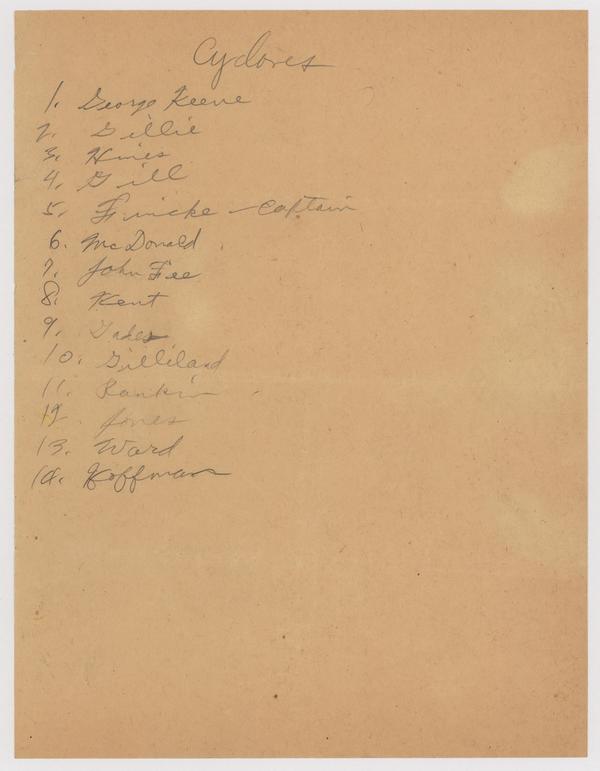 Cyclones
1. George Keene
2. Gillie
3. Hines
4. Gill
5. Fincke - Captain
6. McDonald
7. John Fee
8. Kent
9.
10. Gilliland
11. Rankin
12. Jones
13. Ward
14. Hoffman